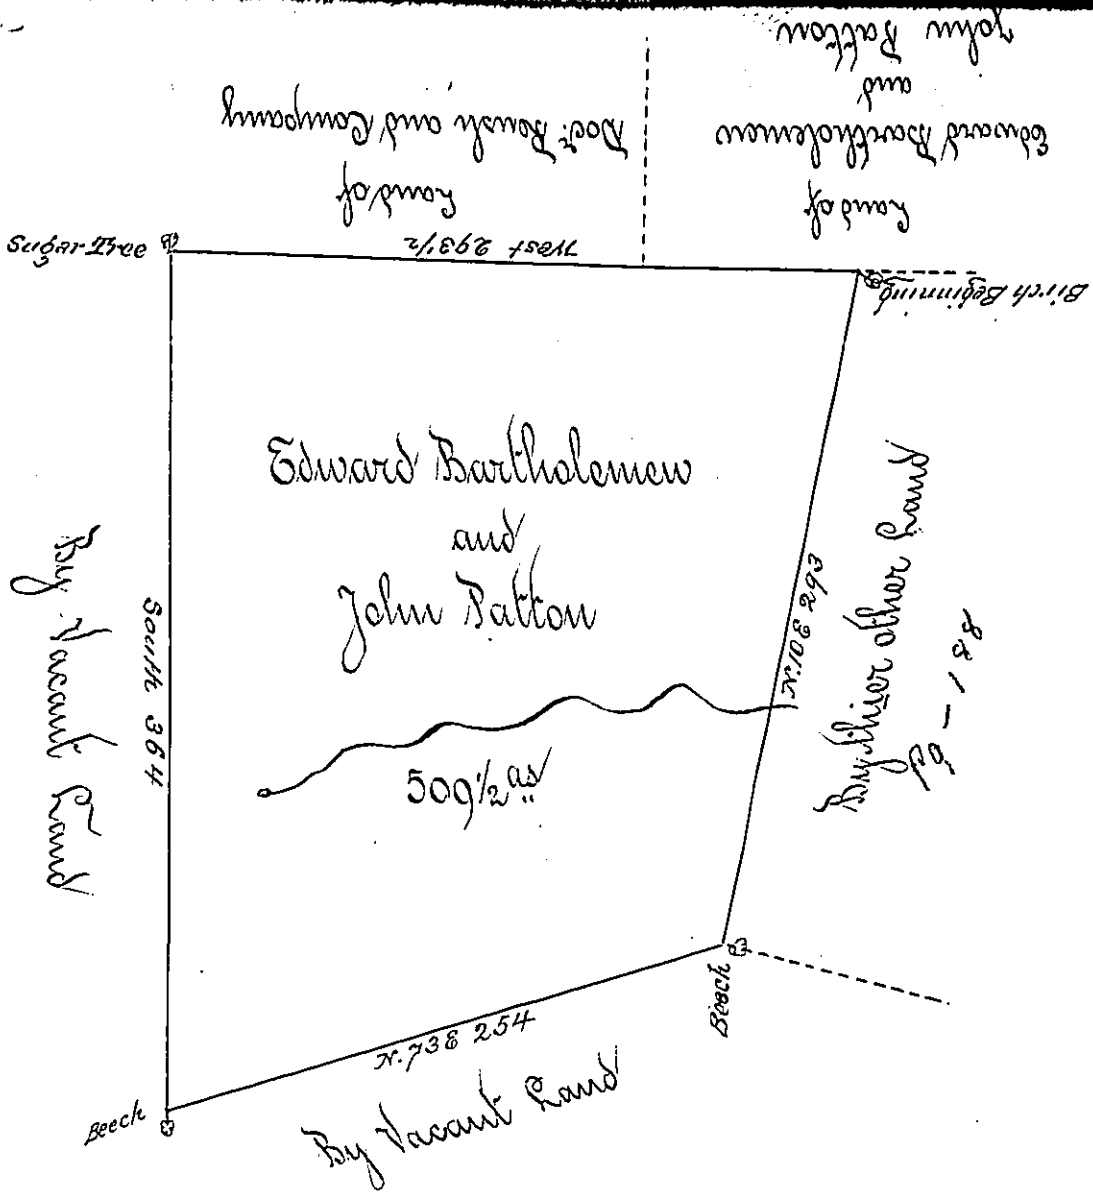 Land of
Edward Bartholemew
and
John Patton
Land of
Docr. Roush and Company
Sugar Tree
West 293½
Birch Beginning
Edward Bartholemew
and
John Patton
509½ as
By Vacant Land
South 364
N.10E 293
By thier other Land
Beech
N.73E 254
By Vacant Land
Beech